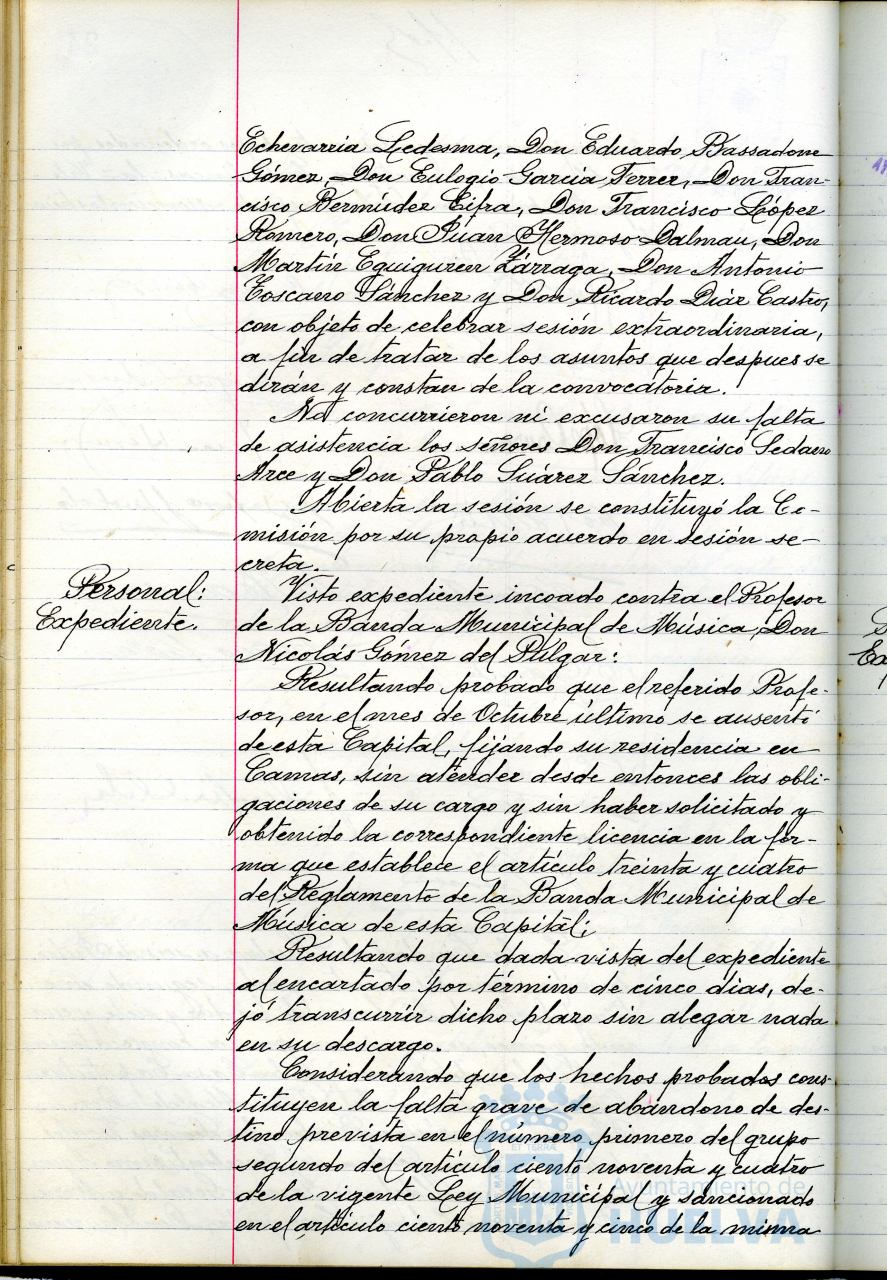 Echevarria Ledesma, Don Eduardo Bassadone
Gómez, Don Eulogio García Ferrer, Don Fran-
cisco Bermúdez Cifra, Don Francisco López
Romero, Don Juan Hermoso Dalmau, Don
Martín Eguiguren Zárraga, Don Antonio
Toscano Sánchez y Don Ricardo Díaz Castro,
con objeto de celebrar sesión extraordinaria,
a fin de tratar de los asuntos que despues se
dirán y constan de la convocatoria.
No concurrieron ni excusaron su falta
de asistencia los señores Don Francisco Sedano
Arce y Don Pablo Suárez Sánchez.
Abierta la sesión se constituyó la Co-
misión por su propio acuerdo en sesión se-
creta.
Personal:
Expediente.
Visto expediente incoado contra el Profesor
de la Banda Municipal de Música, Don
Nicolás Gómez del Pulgar:
Resultando probado que el referido Profe-
sor, en el mes de Octubre último se ausentó
de esta Capital, fijando su residencia en
Camas, sin atender desde entonces las obli-
gaciones de su cargo y sin haber solicitado y
obtenido la correspondiente licencia en la for-
ma que establece el artículo treinta y cuatro
del Reglamento de la Banda Municipal de
Música de esta Capital;
Resultando que dada vista del expediente
al encartado por término de cinco dias, de-
jó transcurrir dicho plazo sin alegar nada
en su descargo.
Considerando que los hechos probados cons-
tituyen la falta grave de abandono de des-
tino prevista en el número primero del grupo
segundo del artículo ciento noventa y cuatro
de la vigente Ley Municipal y sancionado
en el artículo ciento noventa y cinco de la misma
Ayuntamiento de
HUELVA